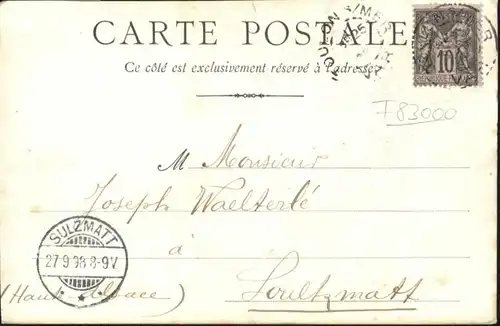 CARTE POSTALE
Ce côté est exclusivement réservé à l'adresse
TOULON S/MER
10
F83000
M Monsieur
Joseph Waelterlé
à
SULZMATT
27.9.98 8-9V.
(Haute Alsace) Soultzmatt